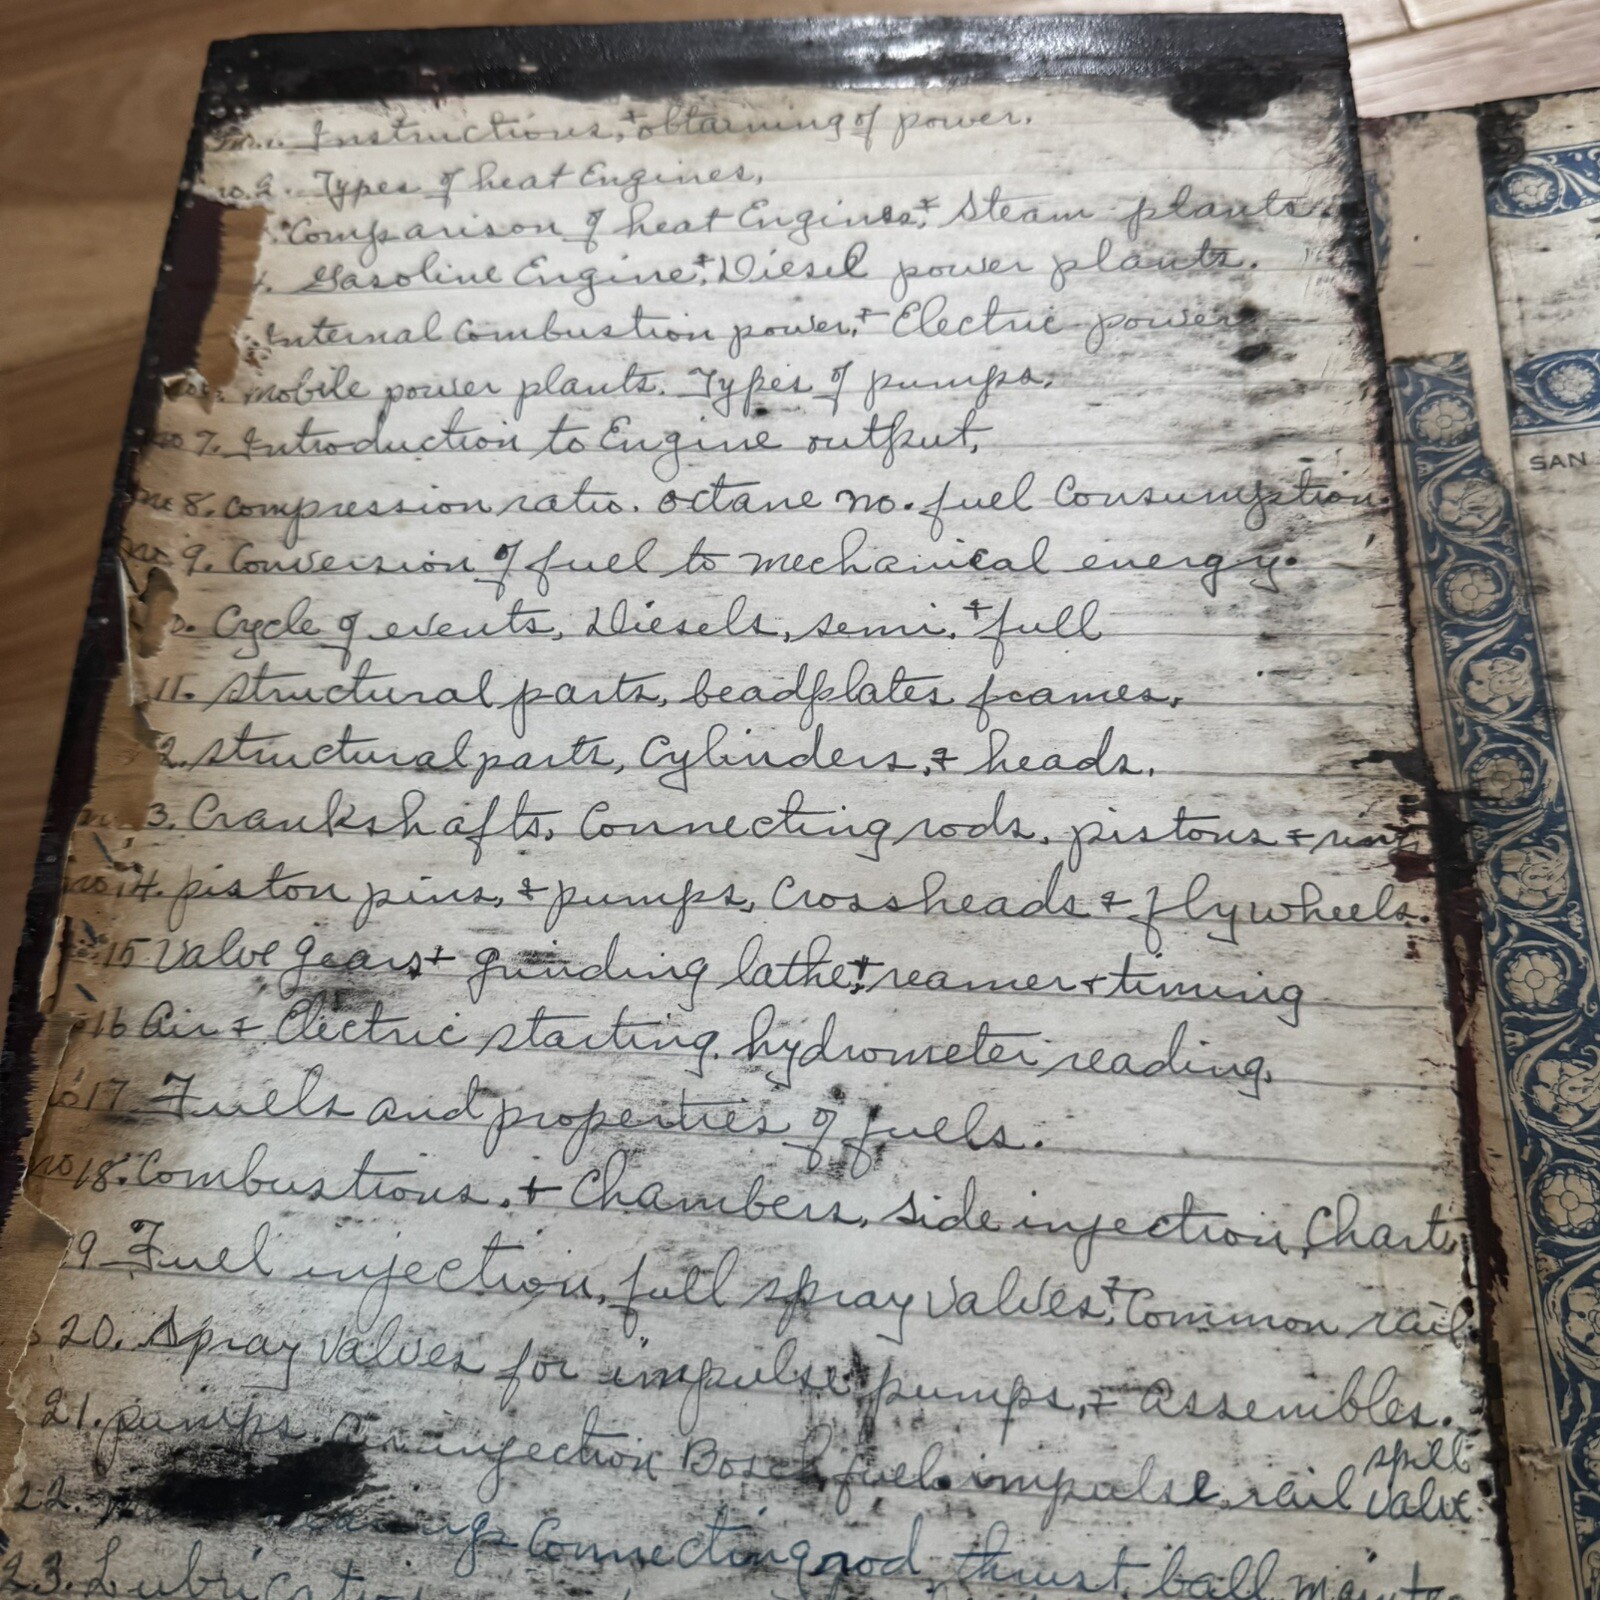 no.1. Instructions, + obtaining of power.
no.2. Types of heat Engines,
Comparison of heat Engines, + Steam plants.
4. Gasoline Engine, + Diesel power plants.
Internal Combustion power, + Electric power
mobile power plants. Types of pumps,
no 7. Introduction to Engine output,
no 8. compression ratio. octane no. fuel Consumption
no 9. Conversion of fuel to mechanical energy.
0. Cycle of events, Diesels, semi, + full
11. structural parts, beadplates frames,
2. structural parts, Cylinders, + heads.
3. Crankshafts, Connecting rods, pistons + rings
no 14. piston pins, + pumps, Crossheads + flywheels.
15 Valve gears + grinding lathe, + reamer + timing
16 Air + Electric starting. hydrometer reading.
no 17 Fuels and properties of fuels.
no 18. Combustions, + Chambers, side injection, Chart,
19 Fuel injection, full spray valves, + Common rail
20. Spray valves for impulse pumps, + Assembles.
21. pumps. injection Bosch fuel impulse, rail spill valve
22. Connecting rod, thrust, ball,
23.
SAN